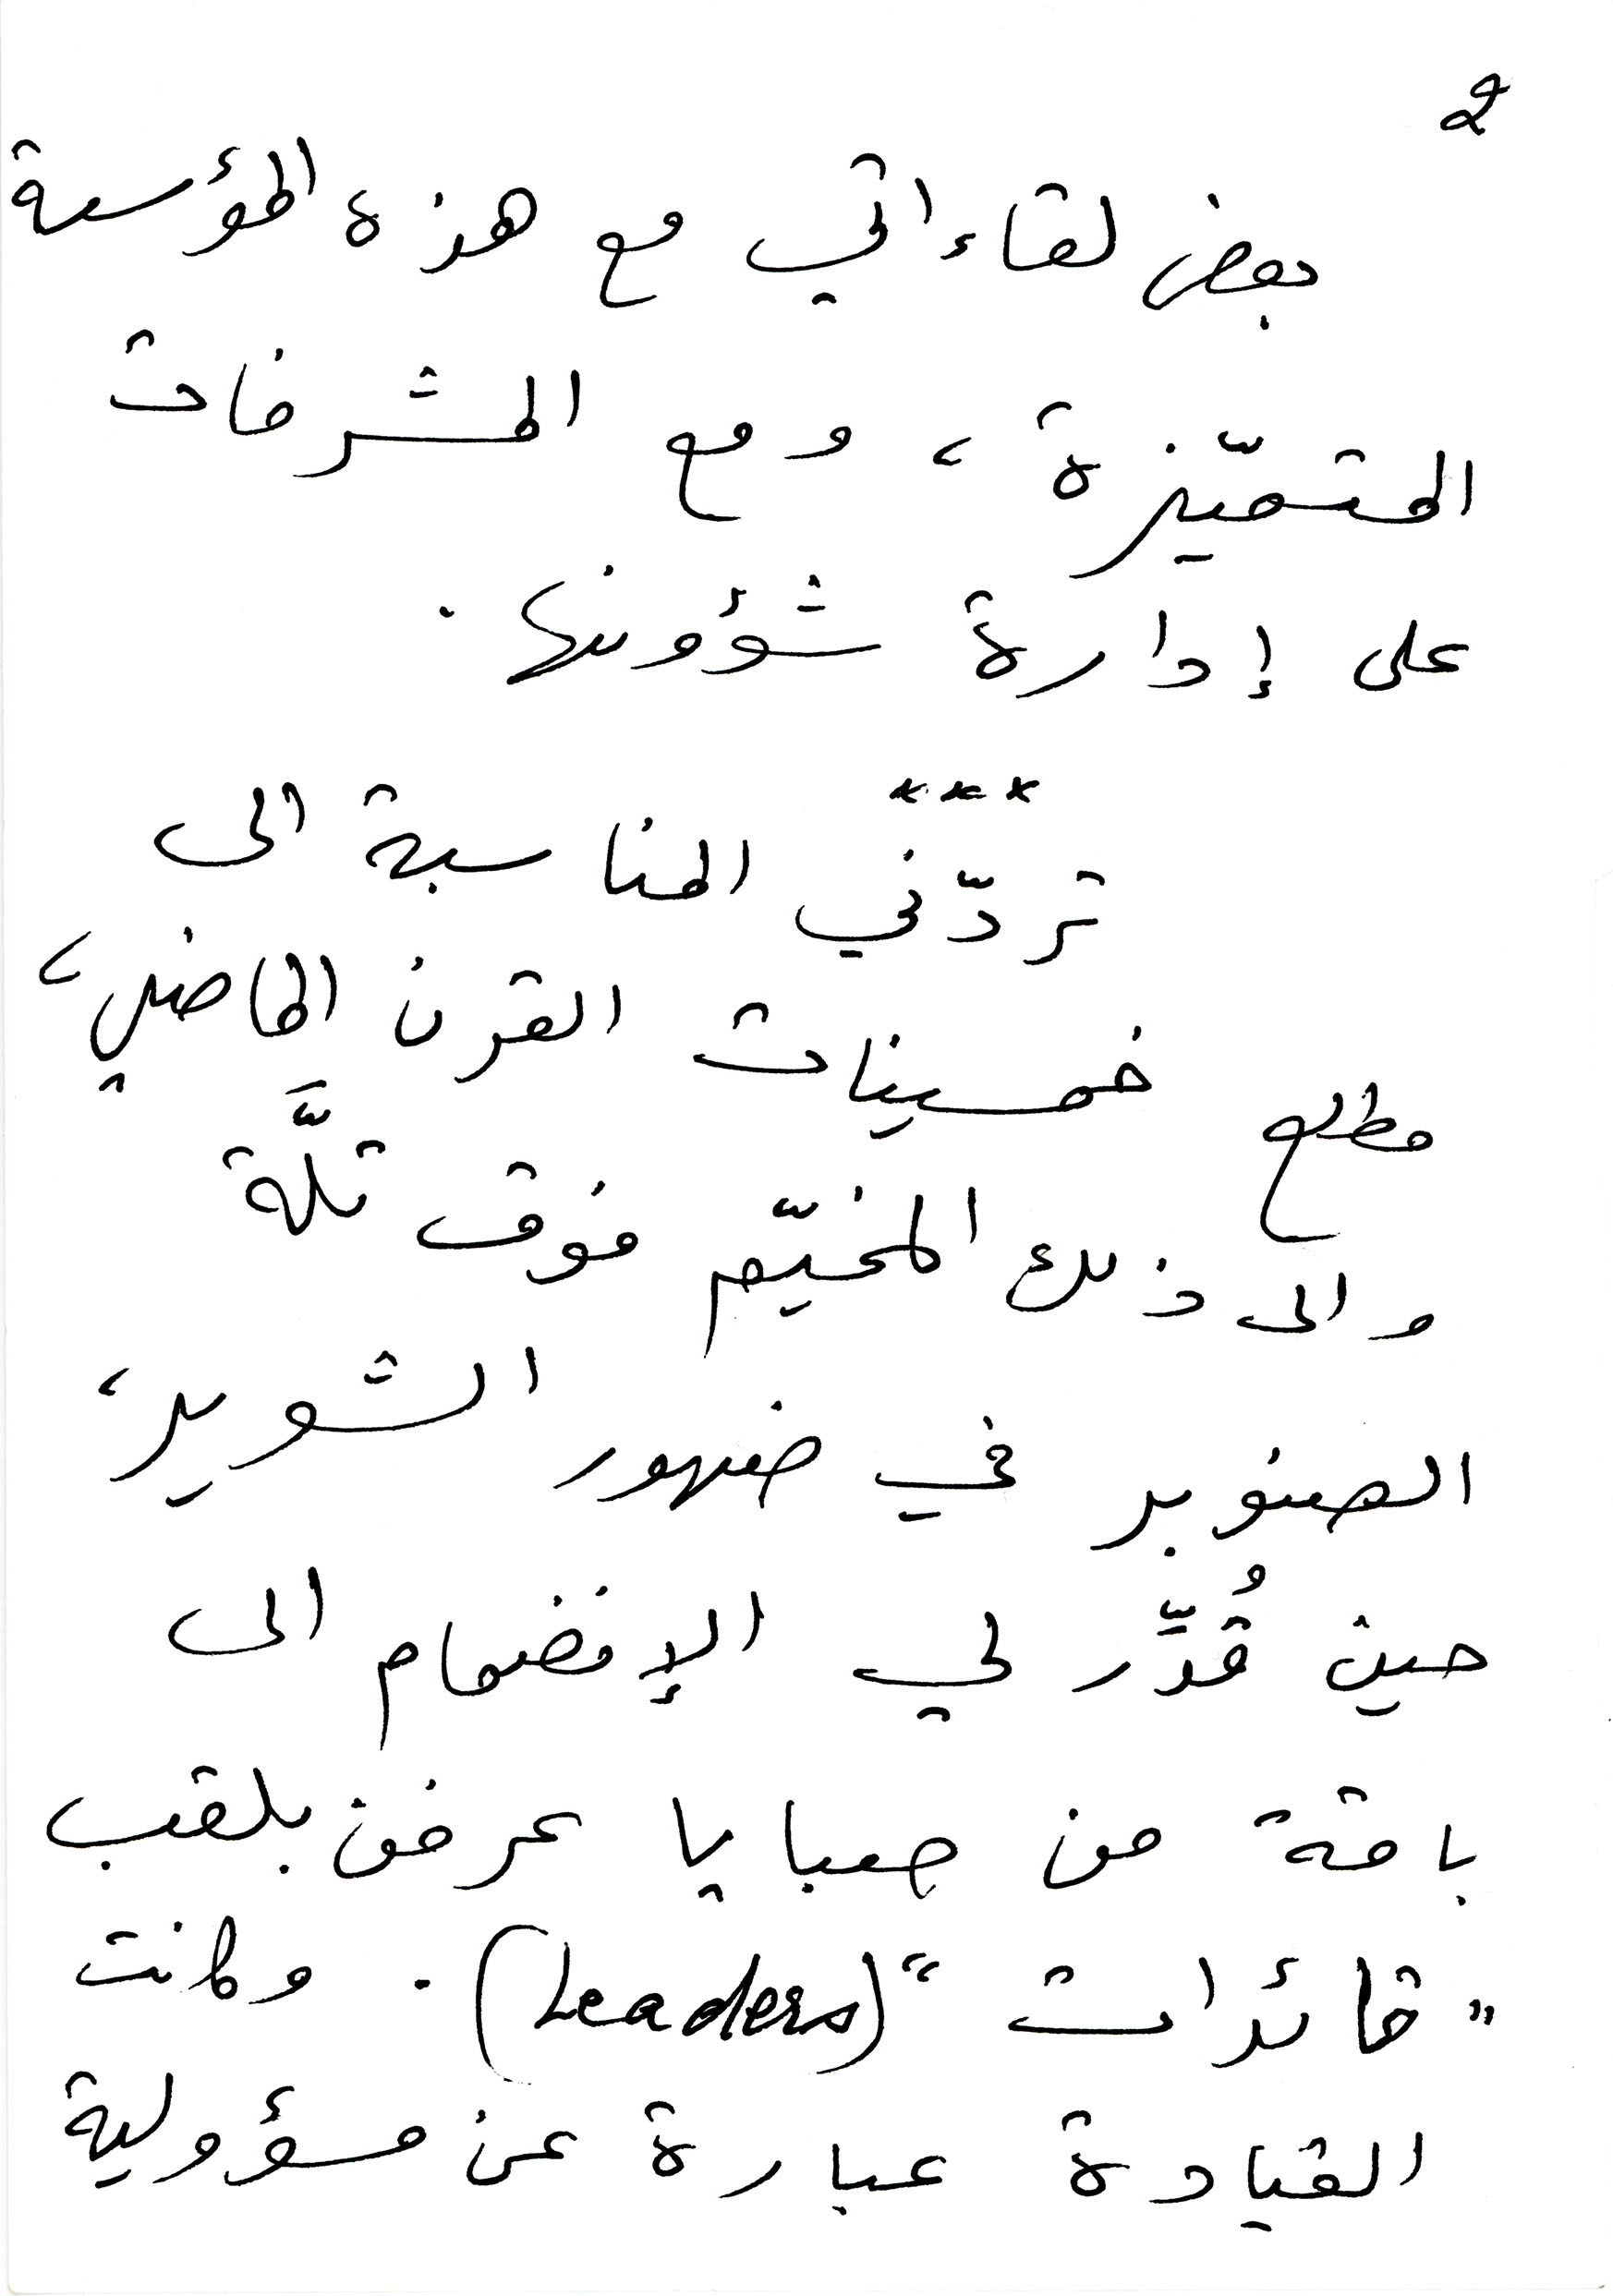 2
بعض لقاءاتي مع هذه المؤسسة
المتميّزة، ومع المشرفات
على إدارة شؤونها.
***
تردّني المناسبة الى
مطلع خمسينات القرن الماضي،
والى ذلك المخيّم فوق تلَّة
الصنوبر في ضهور الشوير،
حين قُدِّر لي الإنضمام الى
باقة من صبايا عرفن بلقب
"قائدات" (Leaders). وكانت
القيادة عبارة عن مسؤولية